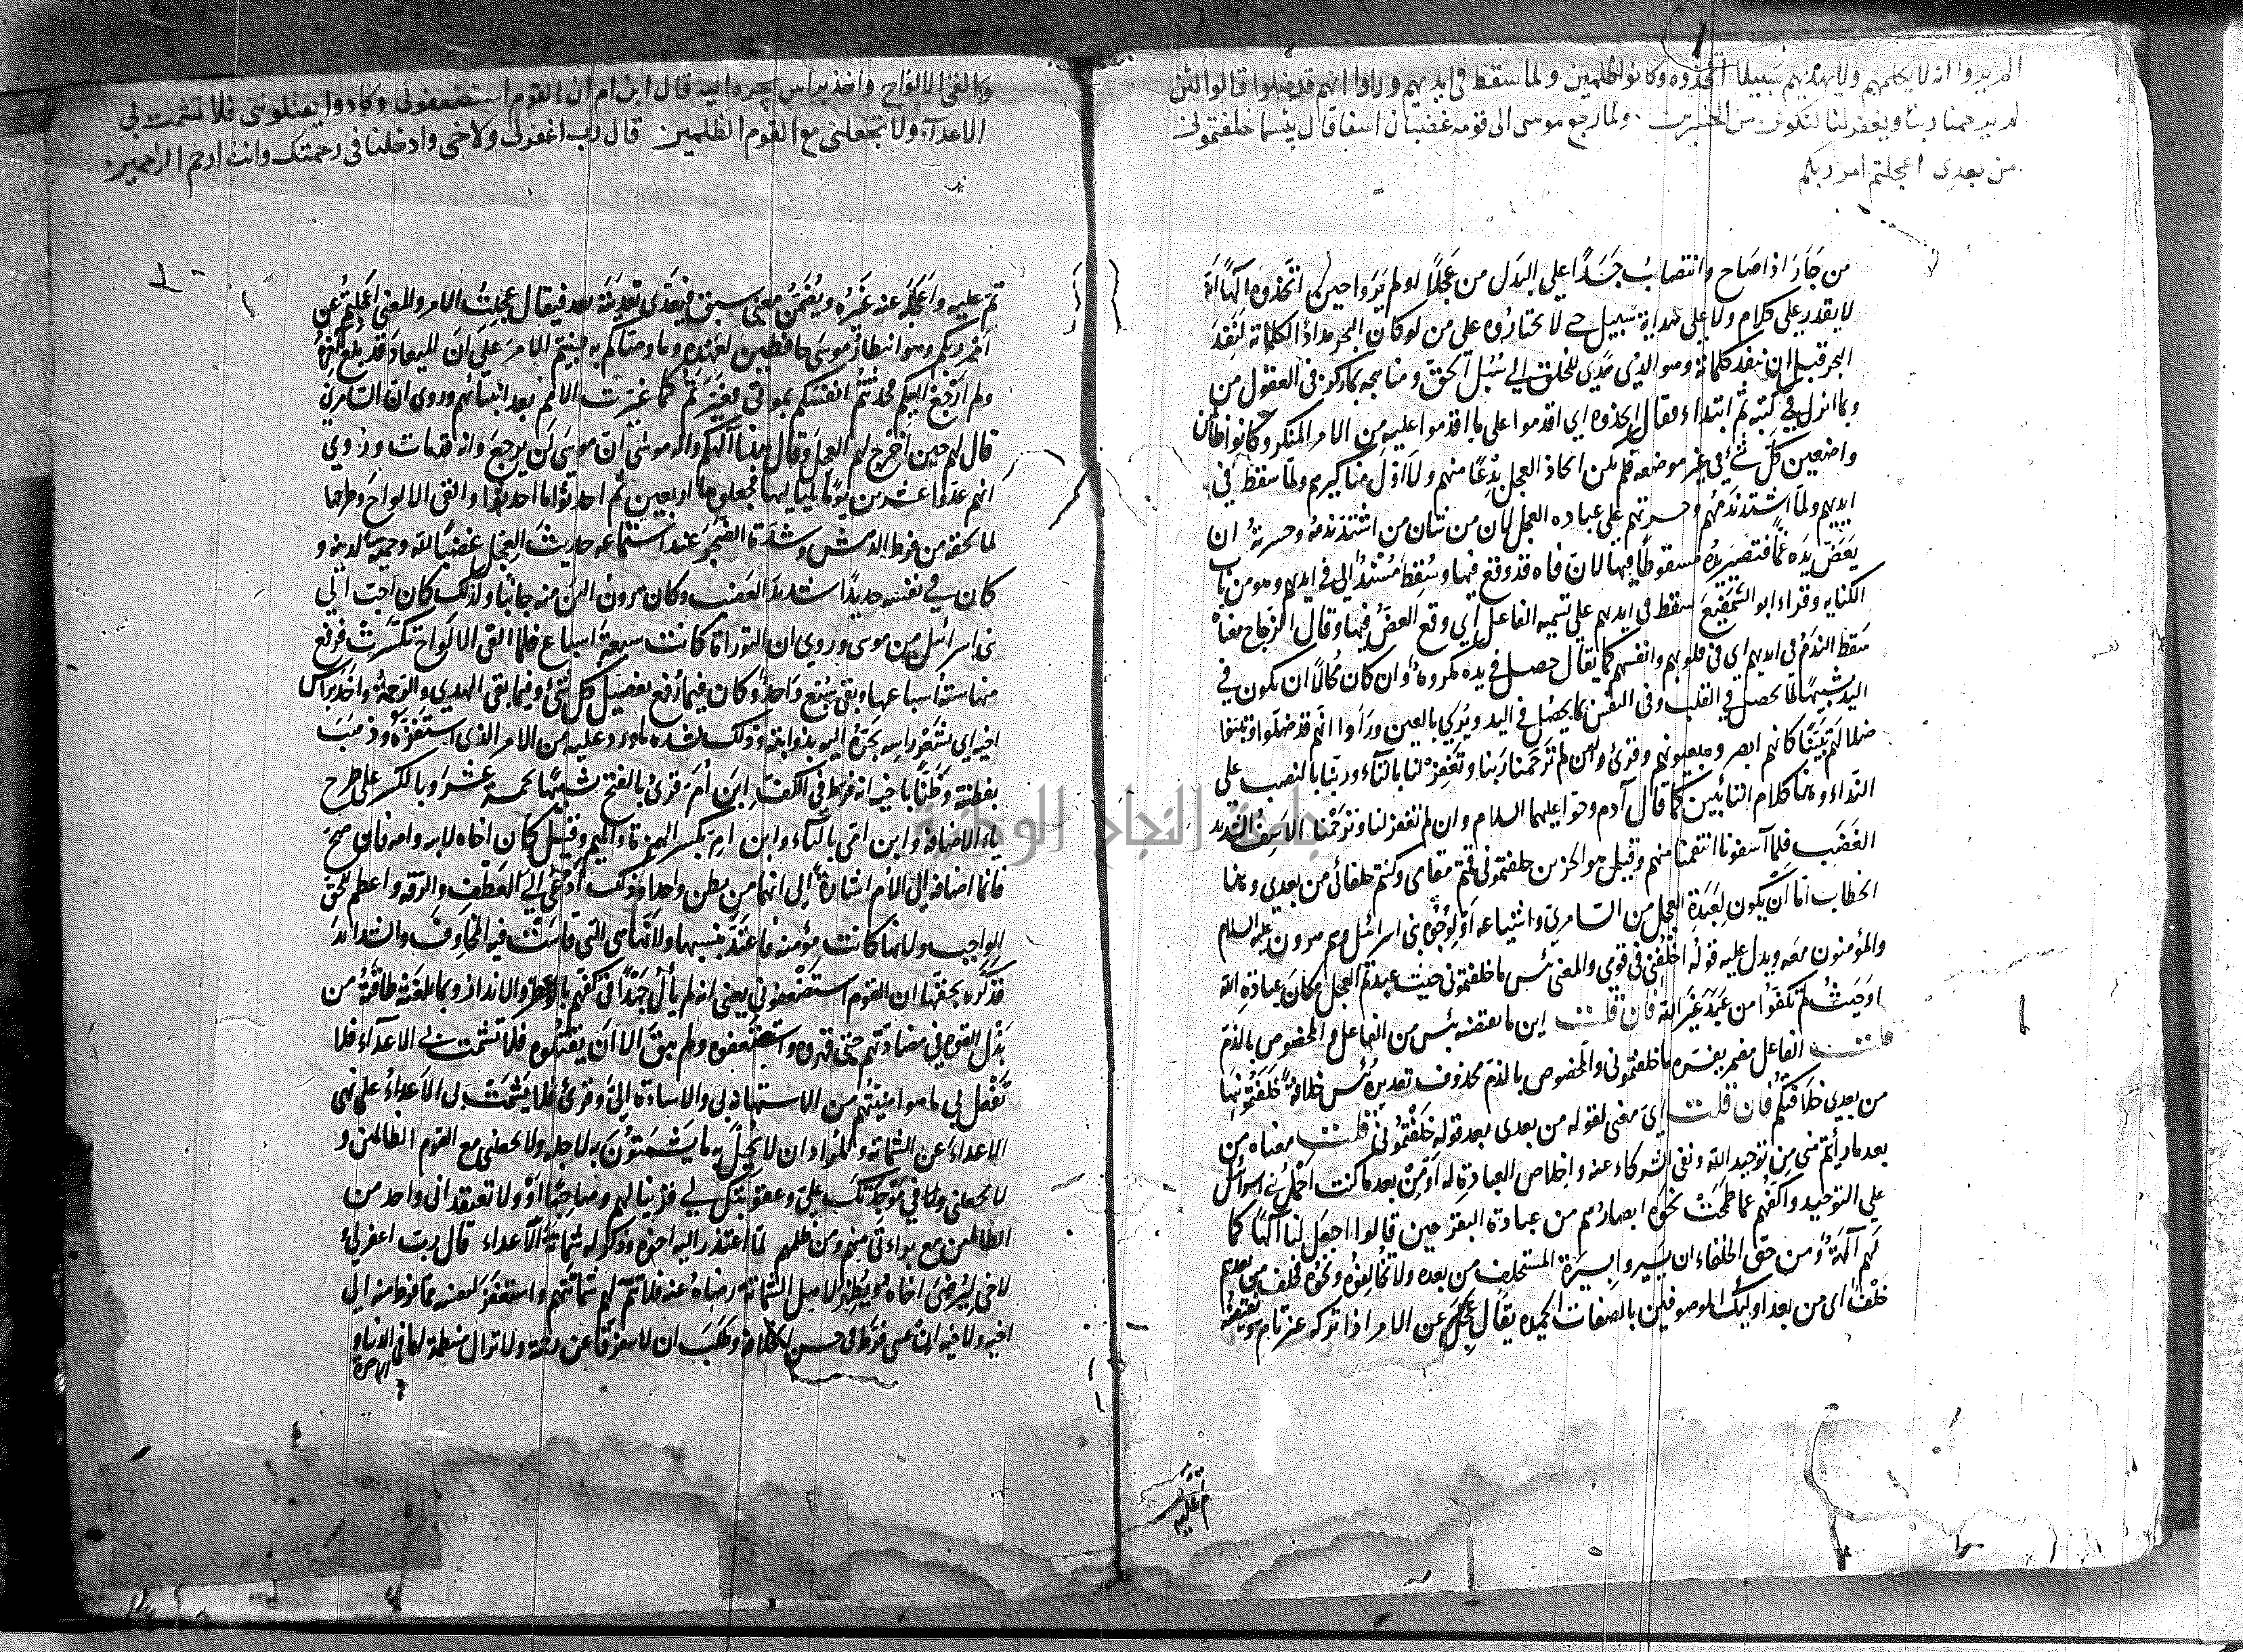 الم يروا انه لا يكلمهم ولا يهديهم سبيلا اتخذوه وكانوا ظلمين ولما سقط في ايديهم وراوا انهم قد ضلوا قالوا لئن
لم يرحمنا ربنا ويغفر لنا لنكونن من الخسرين ولما رجع موسى الى قومه غضبان اسفا قال بئسما خلفتموني
من بعدي اعجلتم امر ربكم
من جَأَرَ اذا صاح وانتصاب جسدًا على البدل من عجلًا الم يروا حين اتخذوه آلهًا انه
لا يقدر على كلام ولا على هداية سبيل حتى لا يختاروه على من لو كان البحر مدادًا لكلماته لنفد
البحر قبل ان تنفد كلماته وهو الذي هدى الخلق الى سبل الحق ومناهجه بما ركز في العقول من
وبما انزل في كتبه ثم ابتداء فقال اتخذوه اي اقدموا على ما اقدموا عليه من الامر المنكر وكانوا ظالمين
واضعين كل شئ في غير موضعه فلم يكن اتخاذ العجل بدعًا منهم ولا اول مناكيرهم ولما سقط في
ايديهم ولما اشتد ندمهم وحسرتهم على عباده العجل لان من شان من اشتد ندمه وحسرته ان
يعض يده غمًا فتصير يده مسقوطًا فيها لان فاه قد وقع فيها وسُقط مُسند الى في ايديهم وهو من باب
الكنايه وقراء ابو السميفع سقط في ايديهم على تسميه الفاعل اي وقع العض فيها وقال الزجاج معناه
سقط الندم في ايديهم اي في قلوبهم وانفسهم كما يقال حصل في يده مكروه وان كان محالًا ان يكون في
اليد تشبيهًا لما يحصل في القلب وفي النفس بما يحصل في اليد ويُرى بالعين ورَأوا انهم قد ضلوا وتبينوا
ضلالهم تبيّنًا كانهم ابصروه بعيونهم وقرئ لئن لم ترحمنا ربنا وتغفر لنا بالتاء وربنا بالنصب على
النداء وهذا كلام التائبين كما قال آدم وحوا عليهما السلام وان لم تغفر لنا وترحمنا الاسِفُ الشديد
الغضب فلما آسفونا انتقمنا منهم وقيل هو الحزين خلفتموني قمتم مقامي وكنتم خلفائى من بعدي وهذا
الخطاب اما ان يكون لِعَبَدَةِ العجل من السامري واشياعه او لوجوه بني اسرائل وهم هرون عليه السلام
والمؤمنون معه ويدل عليه قوله اخلفني في قومي والمعنى بئس ما خلفتموني حيث عبدتم العجل مكان عبادة الله
او حيث لم تكفّوا من عَبَدَ غير الله فان قلت اين ما يقتضيه بئس من الفاعل والمخصوص بالذم
قلت الفاعل مضمر يفسره ما خلفتموني والمخصوص بالذم محذوف تقديره بئس خلافةً خلفتمونيها
من بعدي خلافتكم فان قلت اي معنى لقوله من بعدي بعد قوله خلفتموني قلت معناه من
بعد ما رأيتم مني من توحيد الله ونفي الشركاء عنه واخلاص العبادة له او من بعد ما كنت احمل بني اسرائل
على التوحيد واكفهم عما طمحت نحوه ابصارهم من عبادة البقر حين قالوا اجعل لنا آلهًا كما
لهم آلهة ومن حق الخلفاء ان يسيروا بسيرة المستخلف من بعده ولا يخالفوه ونحوه فخلف من بعدهم
خلف اى من بعد اوليك الموصوفين بالصفات الحميده يقال عجل عن الامر اذا تركه غير تام ونقيضه
تم عليه
والقى الالواح واخذ براس اخيه يجره اليه قال ابن ام ان القوم استضعفوني وكادوا يقتلونني فلا تشمت بي
الاعدآء ولا تجعلني مع القوم الظلمين قال رب اغفرلي ولاخي وادخلنا في رحمتك وانت ارحم الراحمين
تم عليه واعجله عنه غيره ويُضمن معنى سبق فيعدى تعديته بعد فيقال عجلت الامر والمعنى اعجلتم عن
امر ربكم وهو انتظار موسى حافظين لعهده وما وصاكم به فبنيتم الامر على ان الميعاد قد بلغ آخره
ولم ارجع اليكم فحدثتم انفسكم بموتي فغيرتم كما غيرت الامم بعد انبيائهم وروى ان السامري
قال لهم حين اخرج لهم العجل وقال هذا آلهكم واله موسى ان موسى لن يرجع وانه قد مات وروي
انهم عدّوا عشرين يومًا بلياليها فجعلوها اربعين ثم احدثوا ما احدثوا والقى الالواح وطرحها
لما لحقه من فرط الدهش وشدة الضجر عند استماعه حديث العجل غضبًا لله وحمية لدينه و
كان في نفسه حديدًا شديد الغضب وكان هرون الين منه جانبًا ولذلك كان احب الى
بني اسرائل من موسى وروي ان التوراة كانت سبعة اسباع فلما القى الالواح تكسرت فرفع
منها ستة اسباعها وبقي سُبع واحد وكان فيما رُفع تفصيل كل شئ وفيما بقي الهدى والرحمة واخذ براس
اخيه اى بشعر راسه يجره اليه بذوابته وذلك لشده ما ورد عليه من الامر الذى استفزه وذهب
بفطنته وظنًّا باخيه انه فرط في الكف ابن ام قرئ بالفتح تشبيهًا بخمسة عشر وبالكسر على طرح
ياء الاضافه وابن امي بالياء وابن اِمِّ بكسر الهمزة والميم وقيل كان اخاه لابيه وامه فان صح
فانما اضافه الى الام اشارة الى انهما من بطن واحد وذلك ادعى الى العطف والرقه واعظم للحق
الواجب ولانها كانت مؤمنه فاعتد بنسبها ولانها هى التي قاست فيه المخاوف والشدايد
فذكره بحقها ان القوم استضعفوني يعني انه لم يأل جهدًا في كفهم بالوعظ والانذار وبما بلغته طاقته من
بذل القوه في مضادتهم حتى قهروه واستضعفوه ولم يبق الا ان يقتلوه فلا تشمت بي الاعدآء فلا
تفعل بي ما هو امنيتهم من الاستهانه بي والاساءة الىّ وقرئ فلا يشمت بي الاعداء على نهي
الاعداء عن الشماته والمراد ان لا يحل به ما يشمتون به لاجله ولا تجعلني مع القوم الظالمين و
لا تجعلني في موجدتك علىّ وعقوبتك لي قرينا لهم وصاحبًا او ولا تعتقد اني واحد من
الظالمين مع براءتي منهم ومن ظلمهم لما اعتذر اليه اخوه وذكر له شماتة الاعداء قال رب اغفر لي و
لاخي ليُرضى اخاه ويُظهر لاهل الشماتة رضاه عنه فلا تتم لهم شماتتهم واستغفر لنفسه مما فرط منه الى
اخيه ولاخيه ان عسى فرط في حسن الخلافة وطلب ان لا يتفرقا عن رحمته ولا تزال منتظمة لهما في الدنيا و
الاخرة